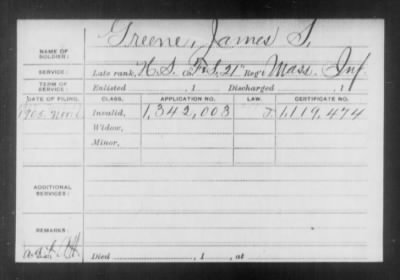 Greene, James S.
NAME OF SOLDIER:
SERVICE: Late rank, H.S. Co. F&S, 21" Reg't Mass. Inf.
TERM OF SERVICE: Enlisted , 1 Discharged , 1
DATE OF FILING. CLASS. APPLICATION NO. LAW. CERTIFICATE NO.
1905 Nov. Invalid, 1,342,003 1,119,474
Widow,
Minor,
ADDITIONAL SERVICES:
REMARKS:
Died , 1 , at